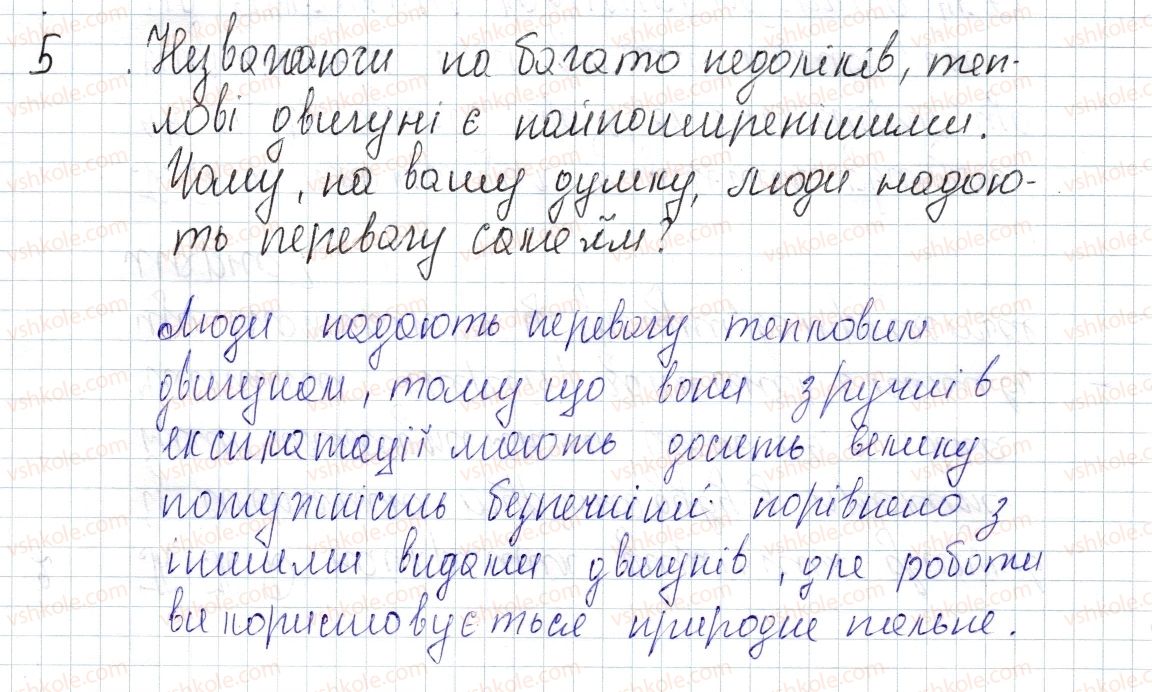 5 Незважаючи на багато недоліків, теп-
лові двигуні є найпоширенішими.
Чому, на вашу думку, люди надаю-
ть перевагу саме їм?
Люди надають перевагу тепловим
двигунам, тому що вони зручні в
експлатації мають досить велику
потужність безпечніші порівнено з
іншими видами двигунів, для роботи
використовується природне пальне.